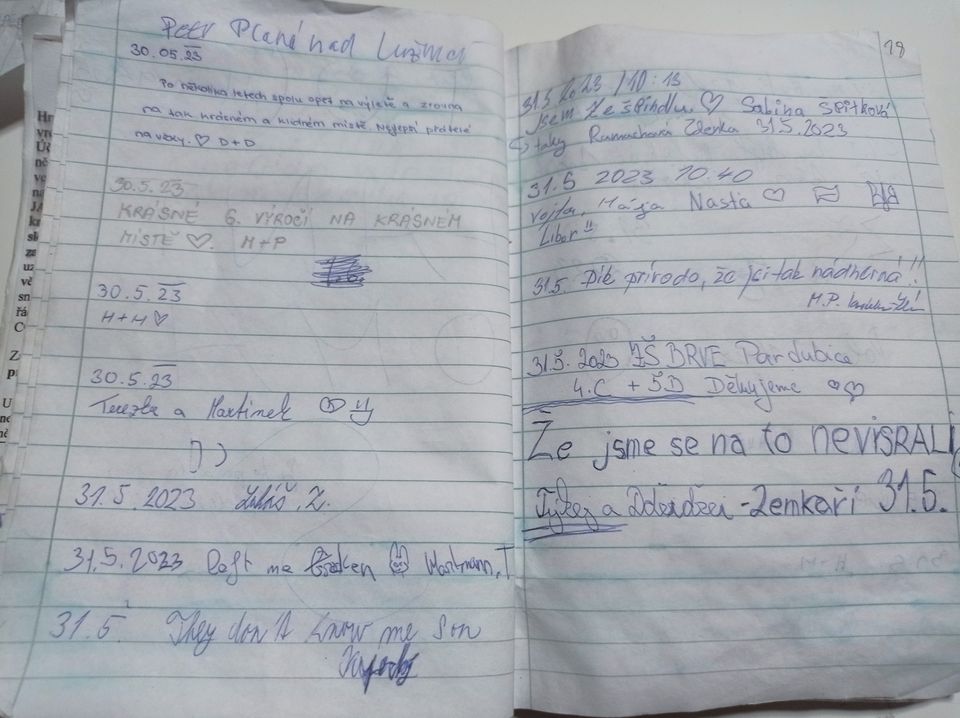 Petr Planá nad Lužnicí
30.05.23
Po několika letech spolu opět na výletě a zrovna
na tak krásném a klidném místě. Nejlepší přátelé
na věky. ♡ D+D
30.5.23
KRÁSNÉ 6. VÝROČÍ NA KRÁSNÉM
MÍSTĚ ♡. M+P
30.5.23
H+H ♡
30.5.23
Terezka a Martinek ♡
31.5.2023 Z.
31.5.2023 left me Hartmann, T
31.5. They don't know me son
18
31.5.2023 / 10:13
jsem ze Špindlu. ♡ Sabina
taky Zdenka 31.5.2023
31.5 2023 10.40
Vojta, Mája Nasta ♡
Libor !!
31.5. Dík přírodo, že jsi tak nádherná!!
M.P.
31.5.2023 ZŠ BRVE Pardubice
4.C + 5.D Děkujeme ♡♡
Že jsme se na to nevisrali
a - Zemkaři 31.5.